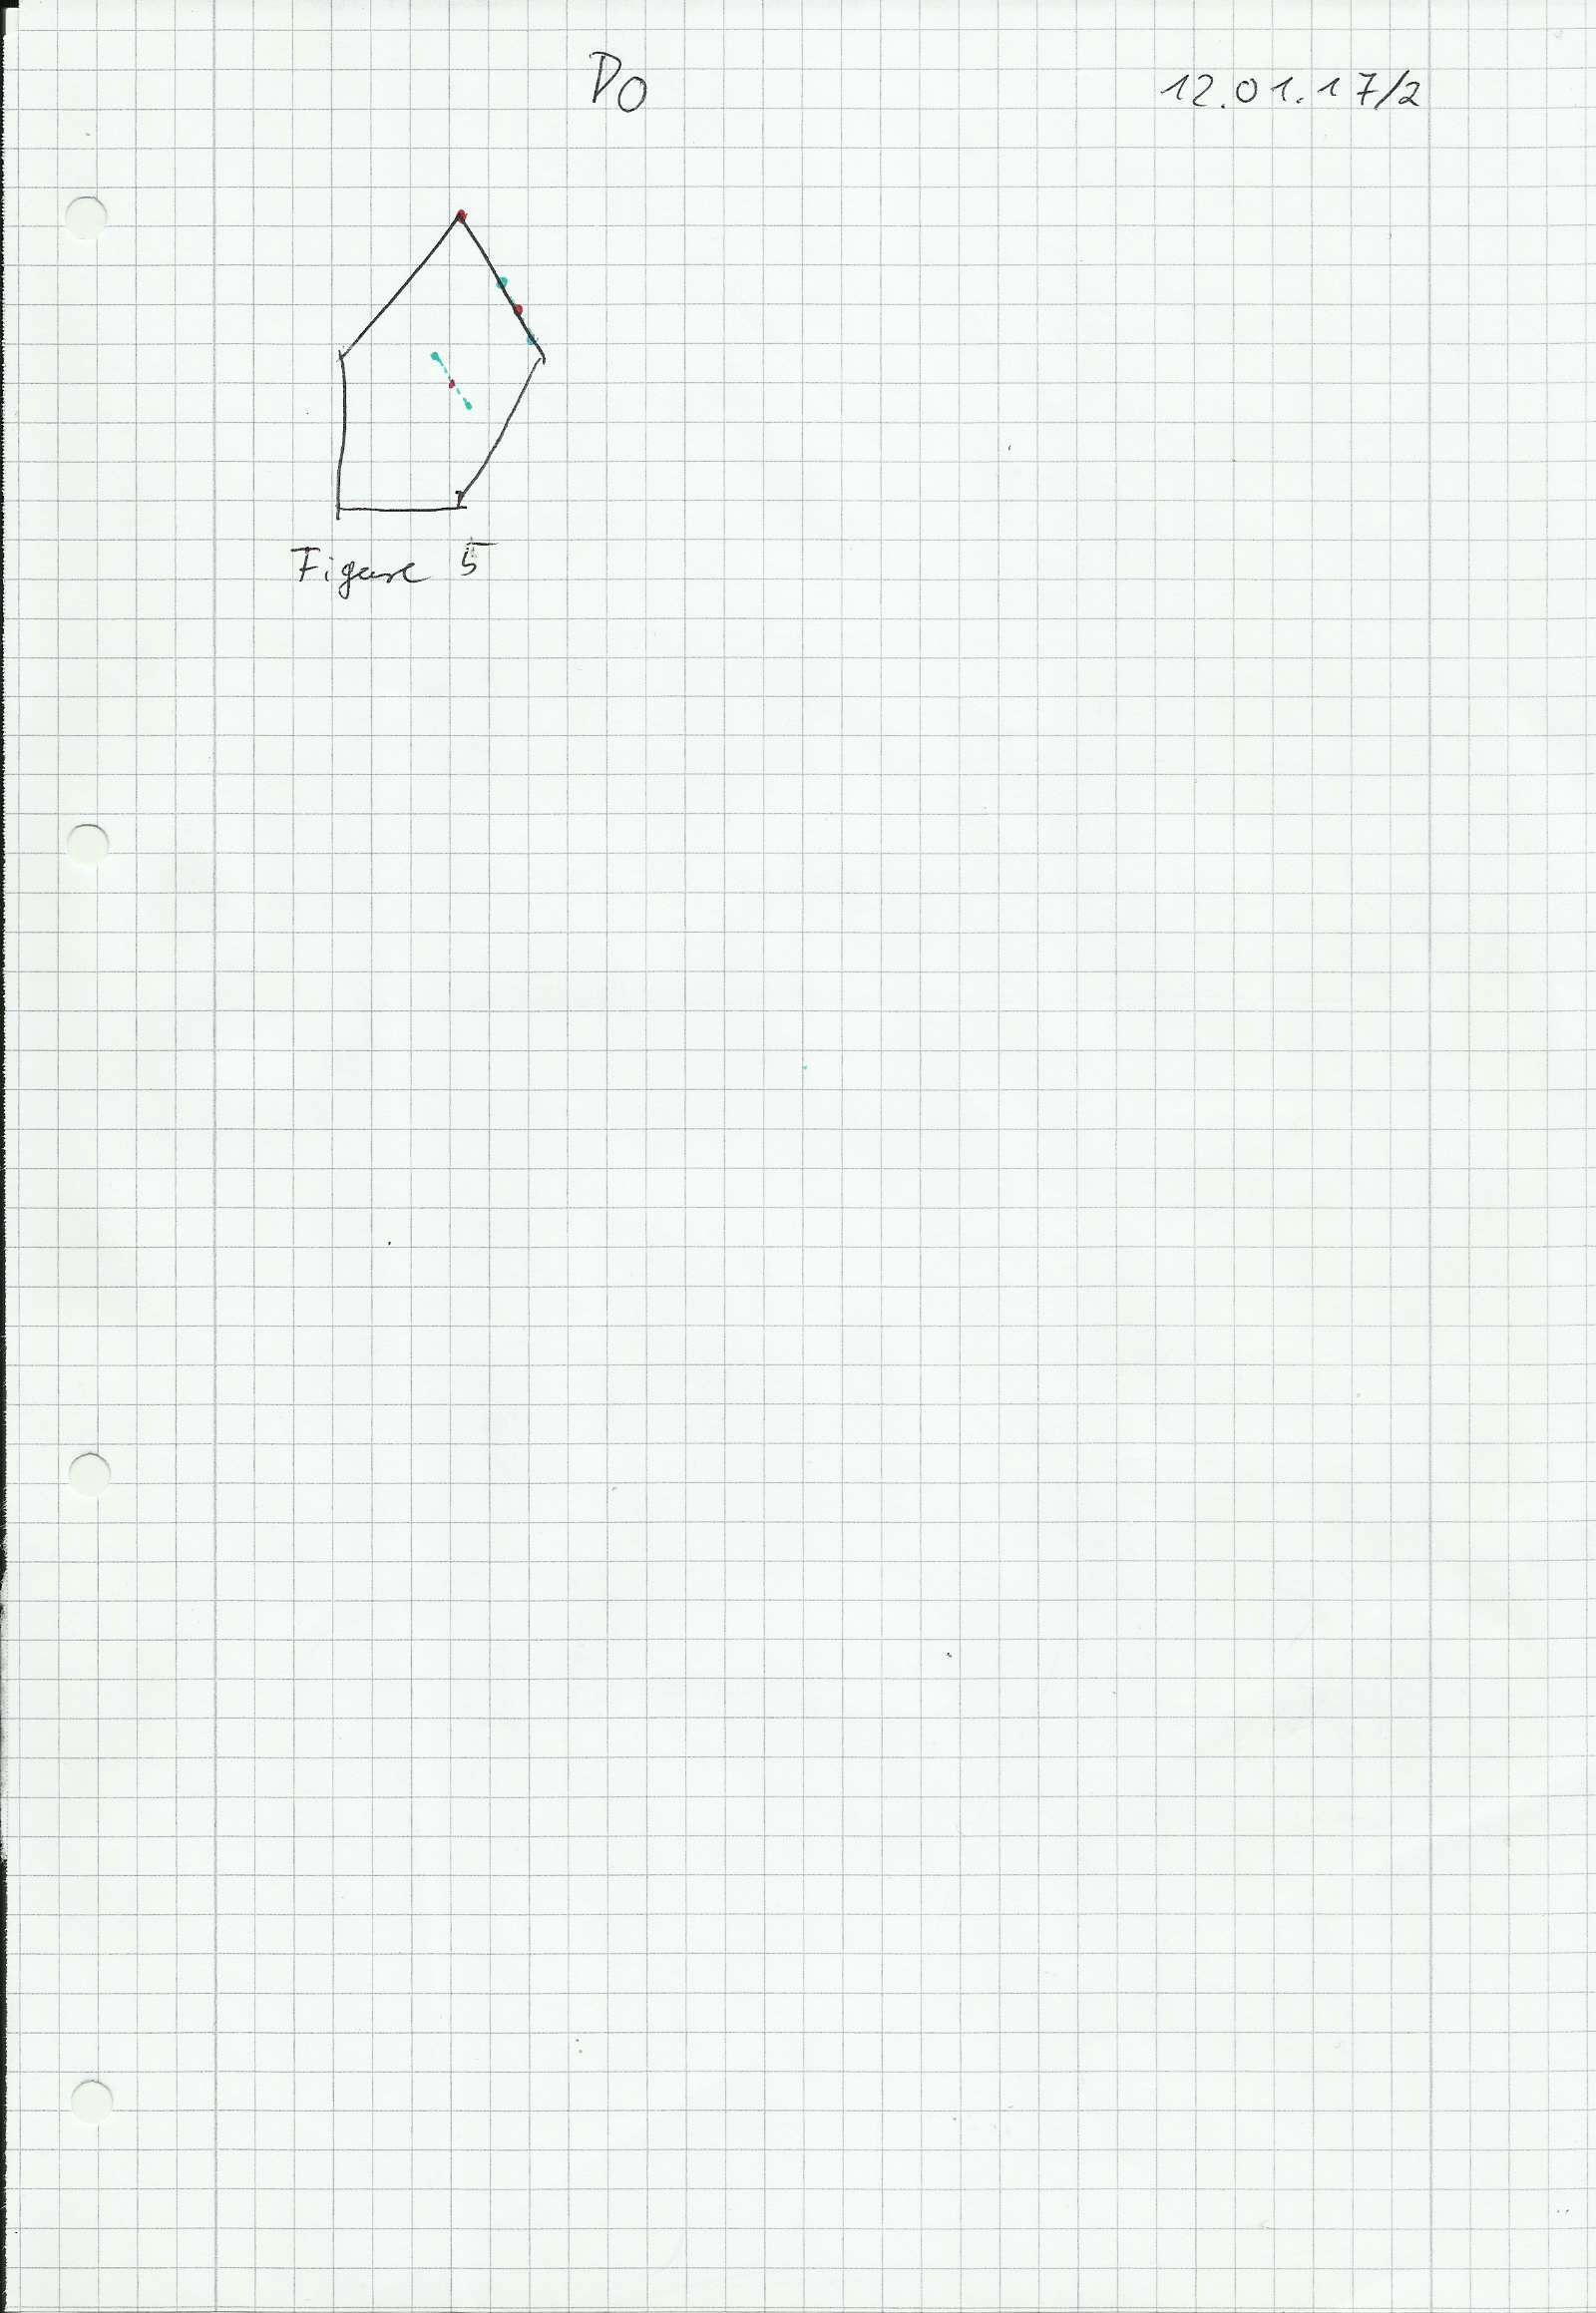 Do
12.01.17/2
Figure 5